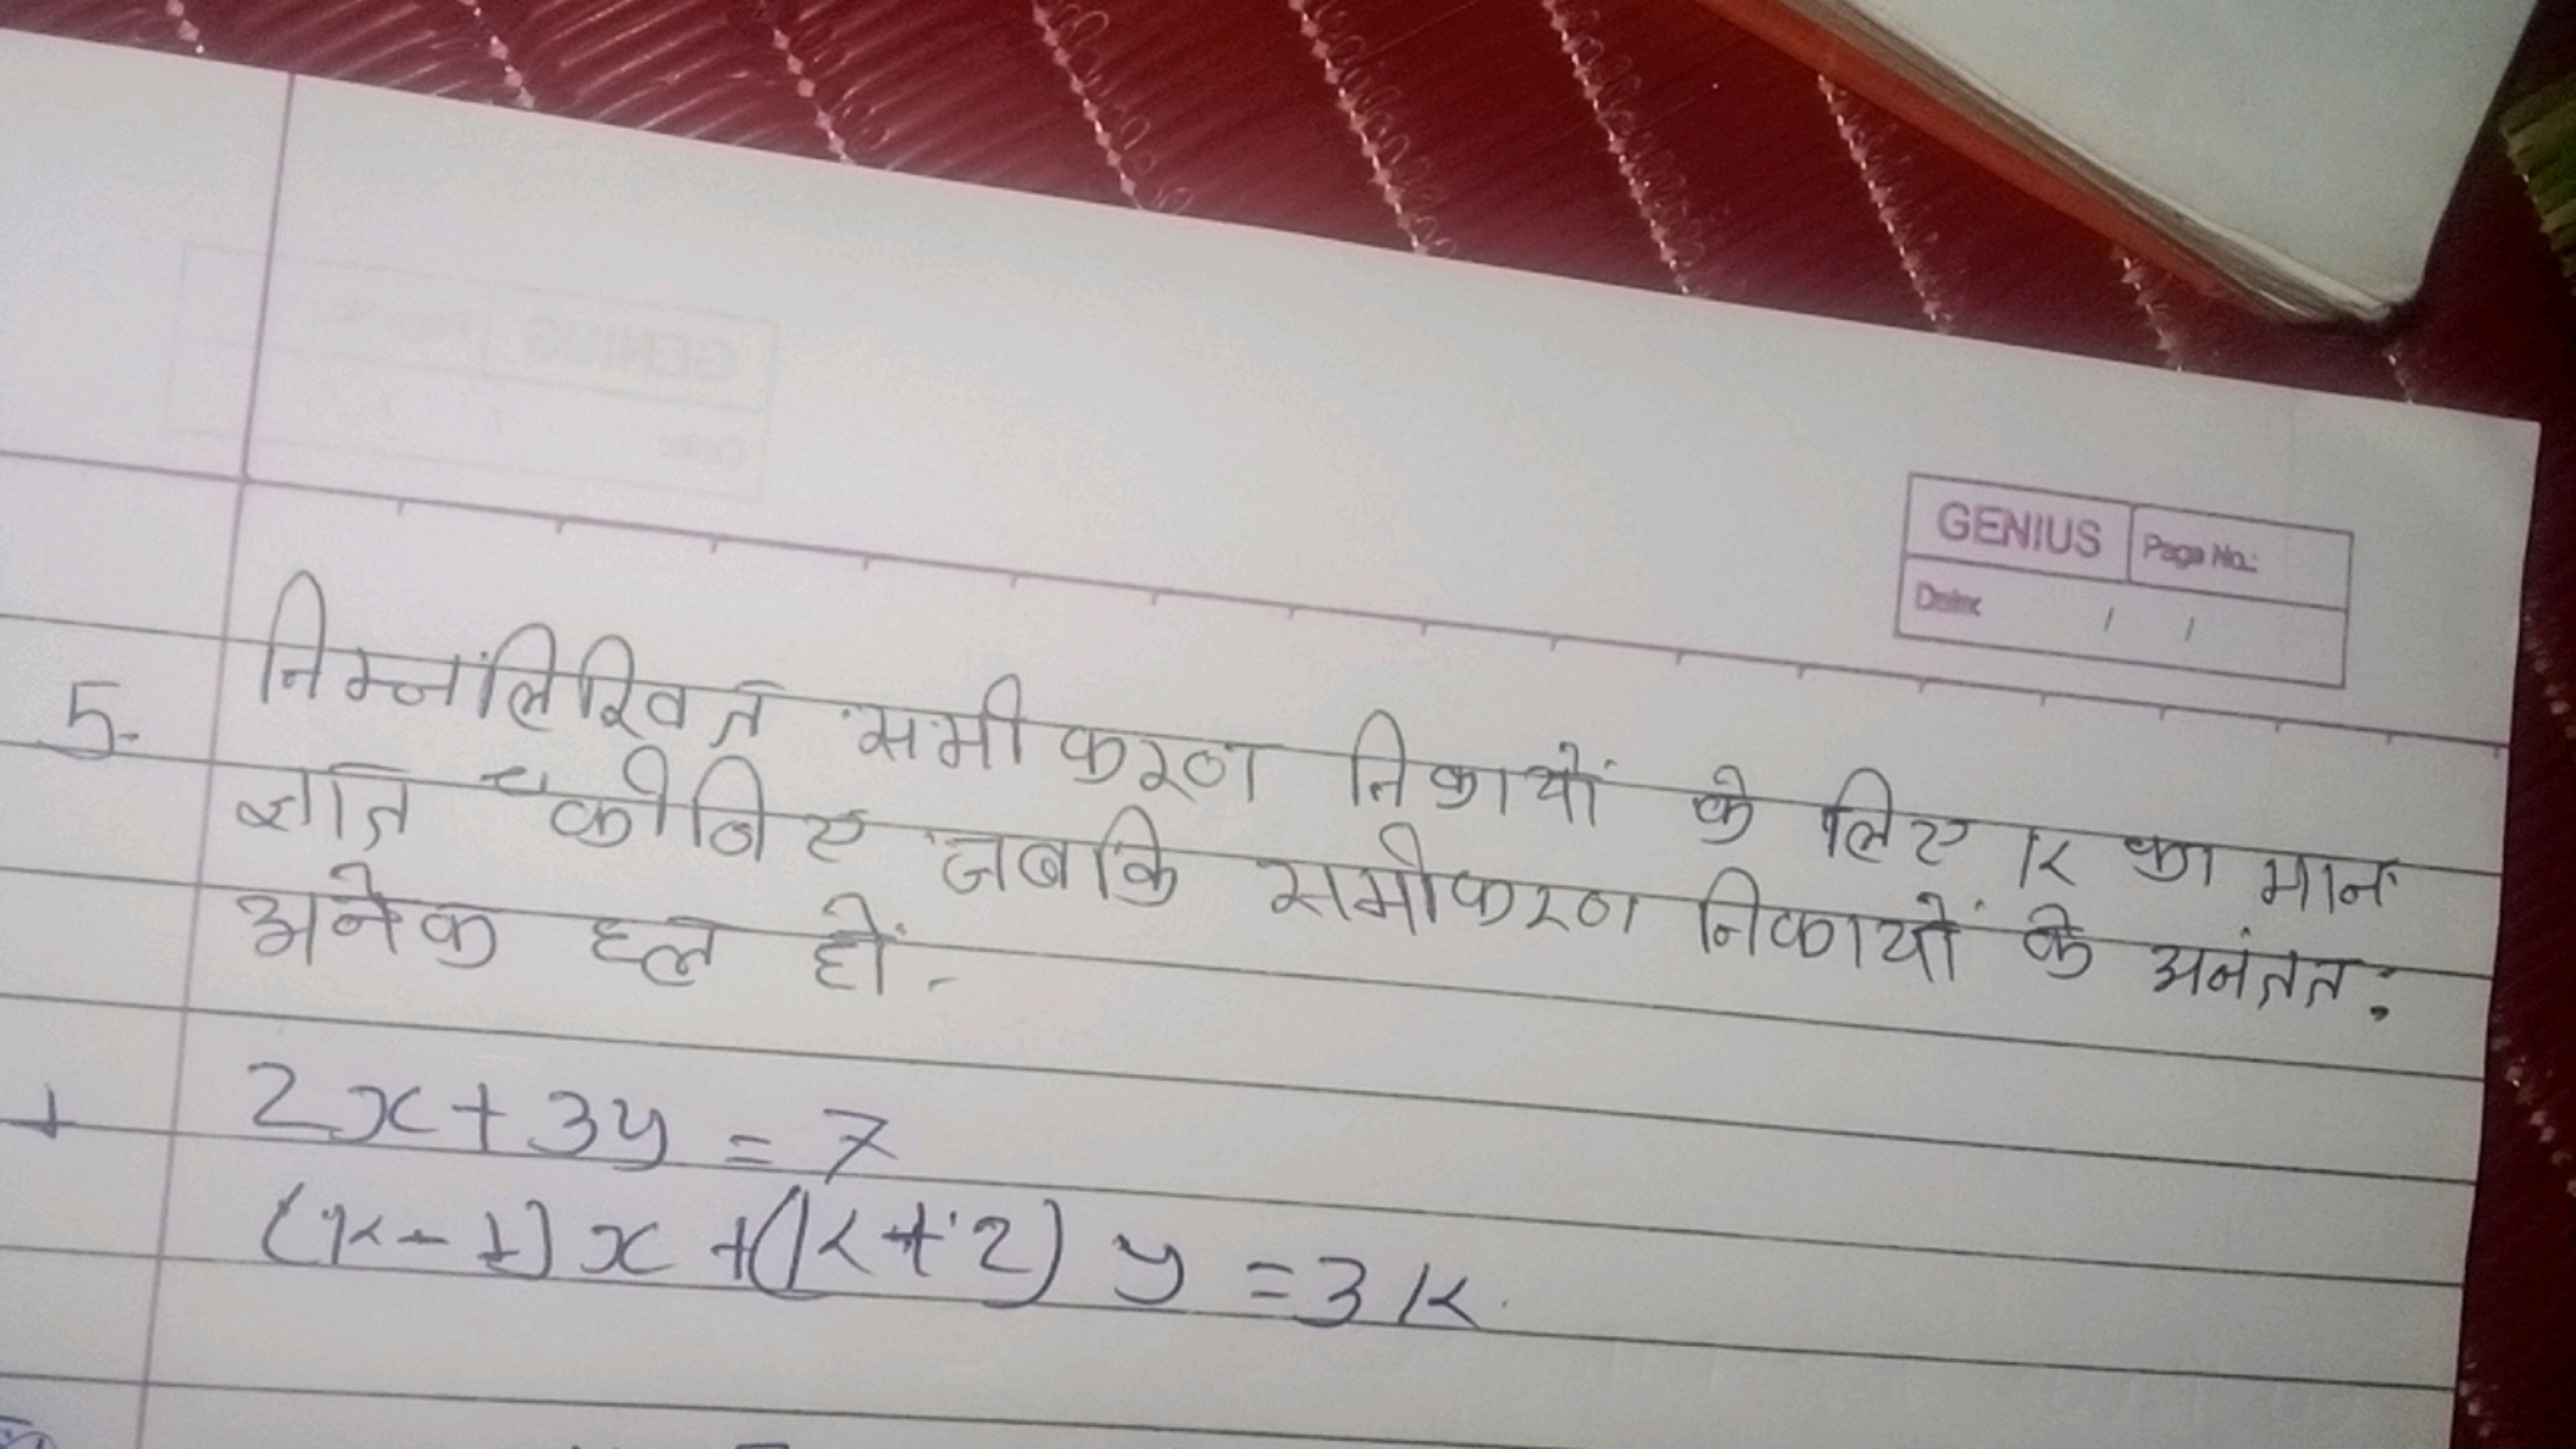 GENIUS Page No.:
Date: / /
5. निम्नलिखित समीकरण निकायों के लिए K का मान
ज्ञात कीजिए जबकि समीकरण निकायों के अनंतत:
अनेक हल हों.
1 2x+3y=7
(K-1)x+(K+2)y=3K